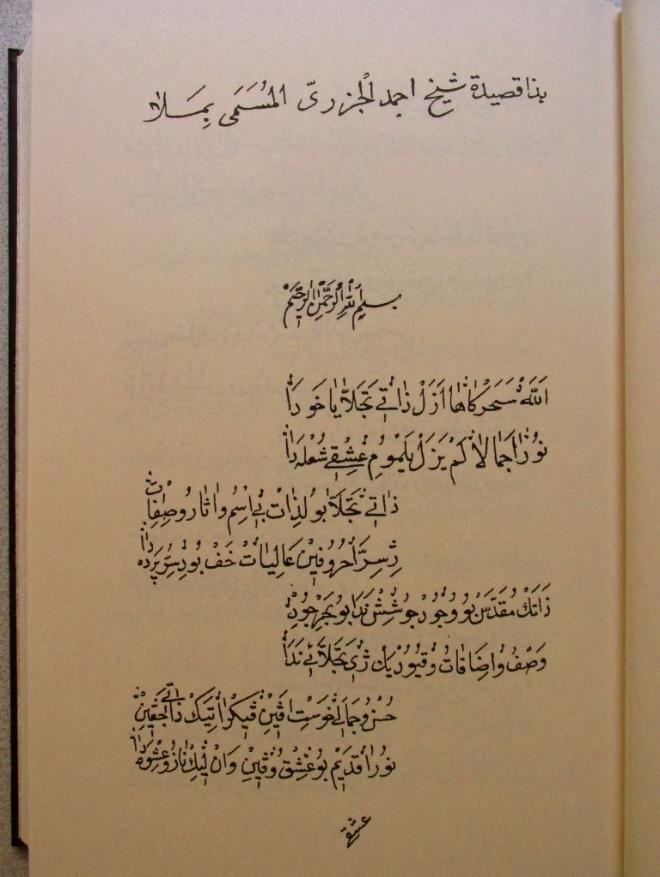 هذا قصيدة شيخ احمد الجزرىّ المُسَمَى بِمَلاٰ
بسم الله الرحمن الرحيم
اَللّٰهْ سَحَرْكَاهَا اَزَلْ ذَاتٖى تَجَلَّا يَا خَوْ دَا
نُوْرَا جَمَالَا لَمْ يَزَلْ يَلْمُومِ عِشْقٖى شُعْلَه دَا
ذَاتٖى تَجَلَّا بُو لِذَاتْ بٖى اِسْمُ و اٰثَارُ و صِفَاتْ
رَسِرَا حُرُوفٖينْ عَالِيَاتْ خَفْ بُو دِ سِرِّ پَرْدَه دَا
ذَاتَكْ مُقَدَّسْ بُو وُجُودْ جُوشِشْ نَدَا بُو بَحْرِ جُودْ
وَصْفُ و اِضَافَاتُ و قُيُودْ يَكْ ژٖى تَجَلَّائٖى نَدَا
حُسْنُ و جَمَالٖى خَوسْتِ ڤٖينْ ڤٖيكْرَا تِيَكْ ذَاتٖى
نُورَا قَدِيمْ بُو عِشْقُ و ڤٖينْ وَانْ لٖيكْ نَازُ و عِشْوَه دَا
عشقٖى